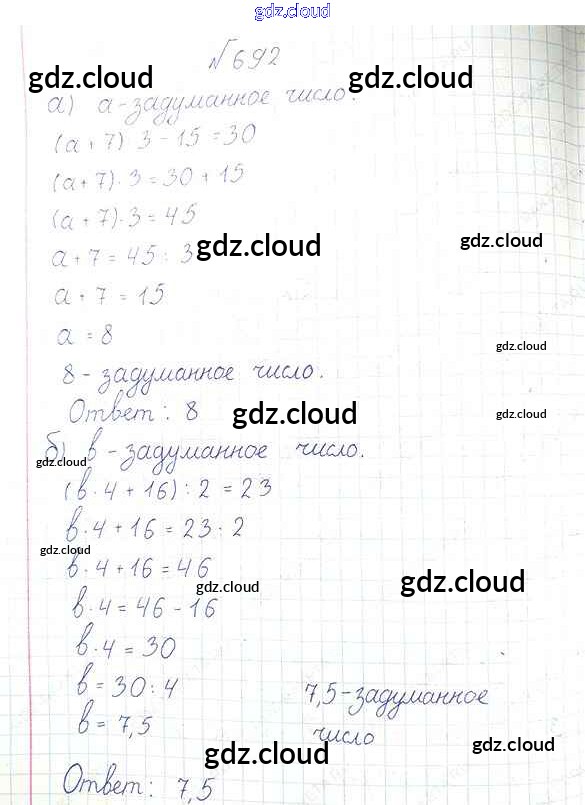 gdz.cloud
№692
gdz.cloud gdz.cloud
а) а-задуманное число.
(а + 7) 3 - 15 = 30
(а + 7) · 3 = 30 + 15
(а + 7) · 3 = 45
gdz.cloud gdz.cloud
а + 7 = 45 : 3
а + 7 = 15
а = 8
gdz.cloud
8 - задуманное число.
Ответ: 8
gdz.cloud gdz.cloud
б) в - задуманное число.
gdz.cloud
(в · 4 + 16) : 2 = 23
в · 4 + 16 = 23 · 2
gdz.cloud
в · 4 + 16 = 46
gdz.cloud gdz.cloud
в · 4 = 46 - 16
в · 4 = 30
в = 30 : 4
7,5 - задуманное
в = 7,5
число
gdz.cloud gdz.cloud
Ответ: 7,5